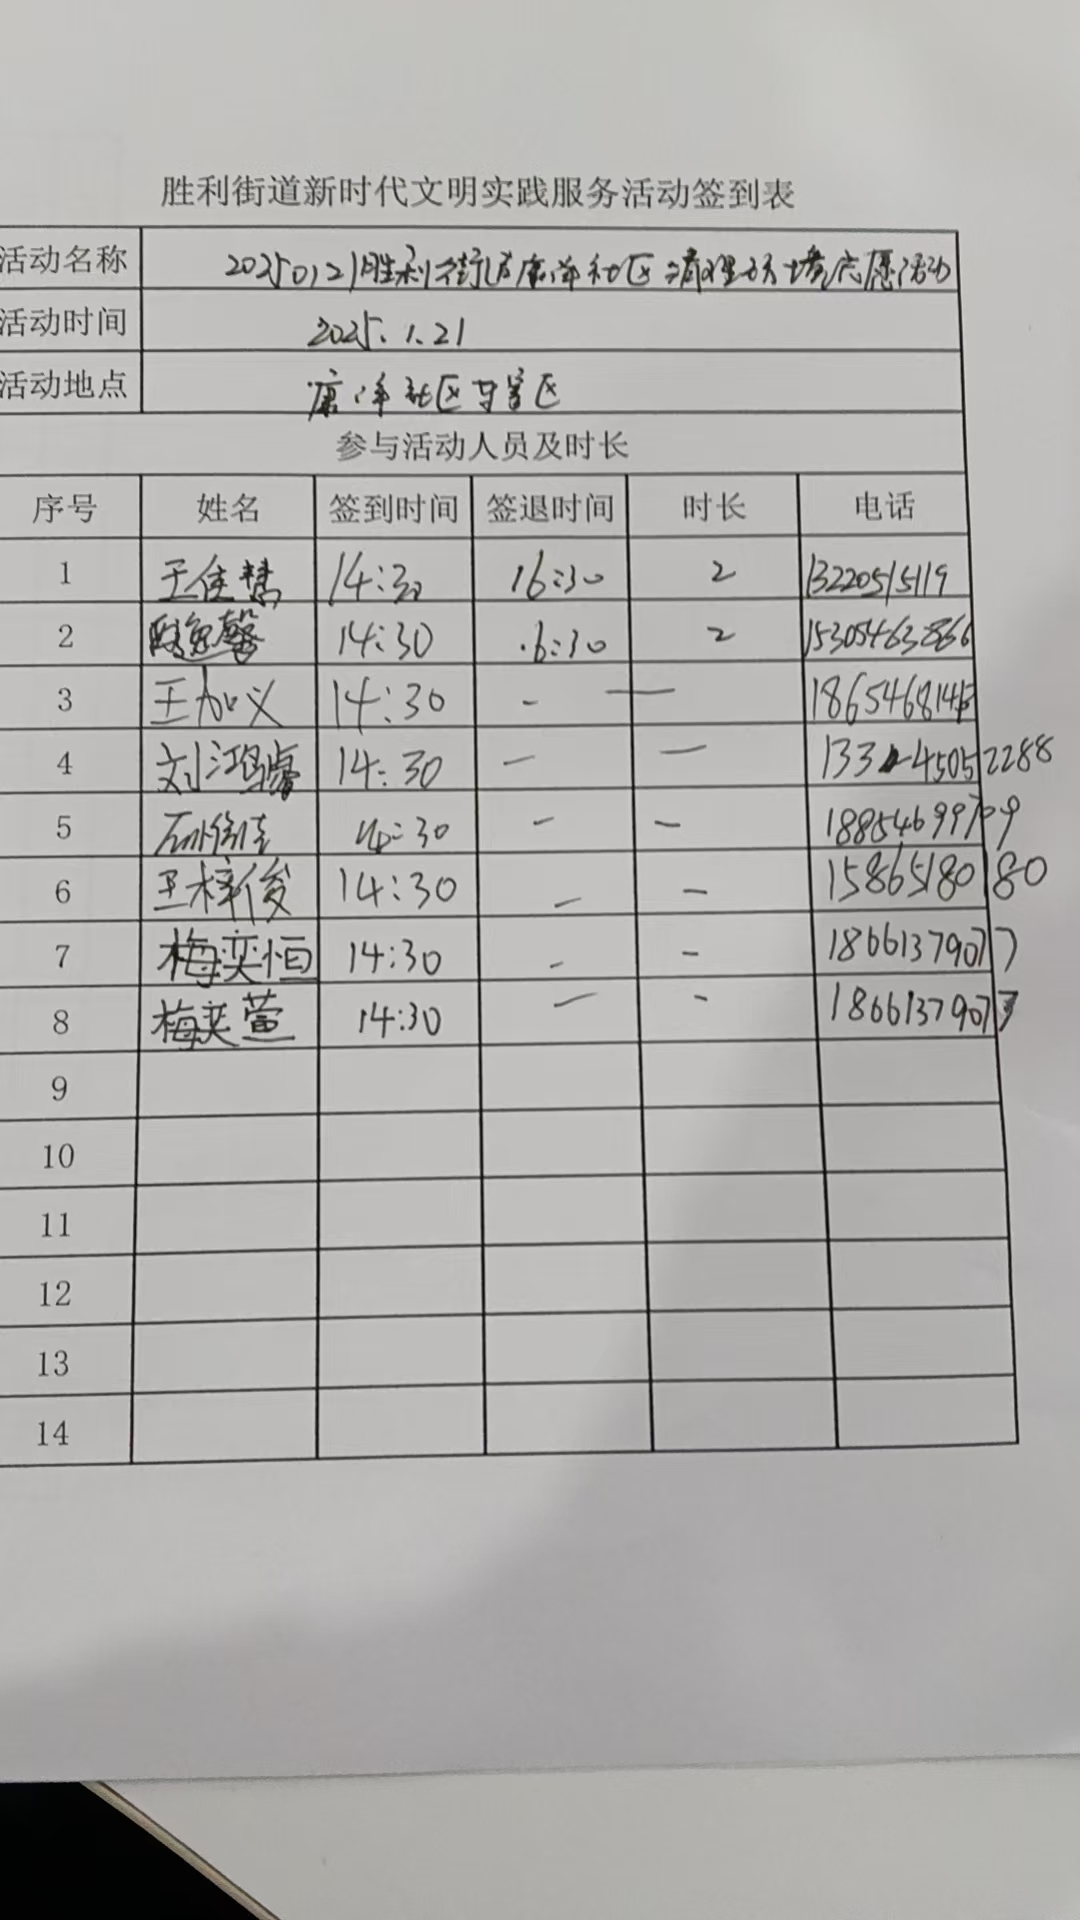 胜利街道新时代文明实践服务活动签到表
活动名称 20250121胜利街道康洋社区清理环境志愿活动
活动时间 2025.1.21
活动地点 康洋社区辖区
参与活动人员及时长
序号 姓名 签到时间 签退时间 时长 电话
1 王佳慧 14:30 16:30 2 13220515119
2 14:30 16:30 2 15305463866
3 王加义 14:30 - —
4 刘鸿睿 14:30 — —
5 14:30 — — 18854699709
6 王梓俊 14:30 — — 15865180180
7 梅奕恒 14:30 — — 18661379077
8 梅奕萱 14:30 — - 18661379077
9
10
11
12
13
14